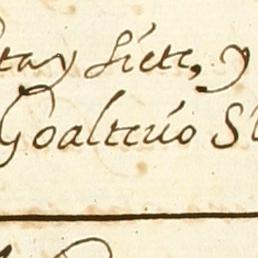 ta y siete, y
Goalterio S